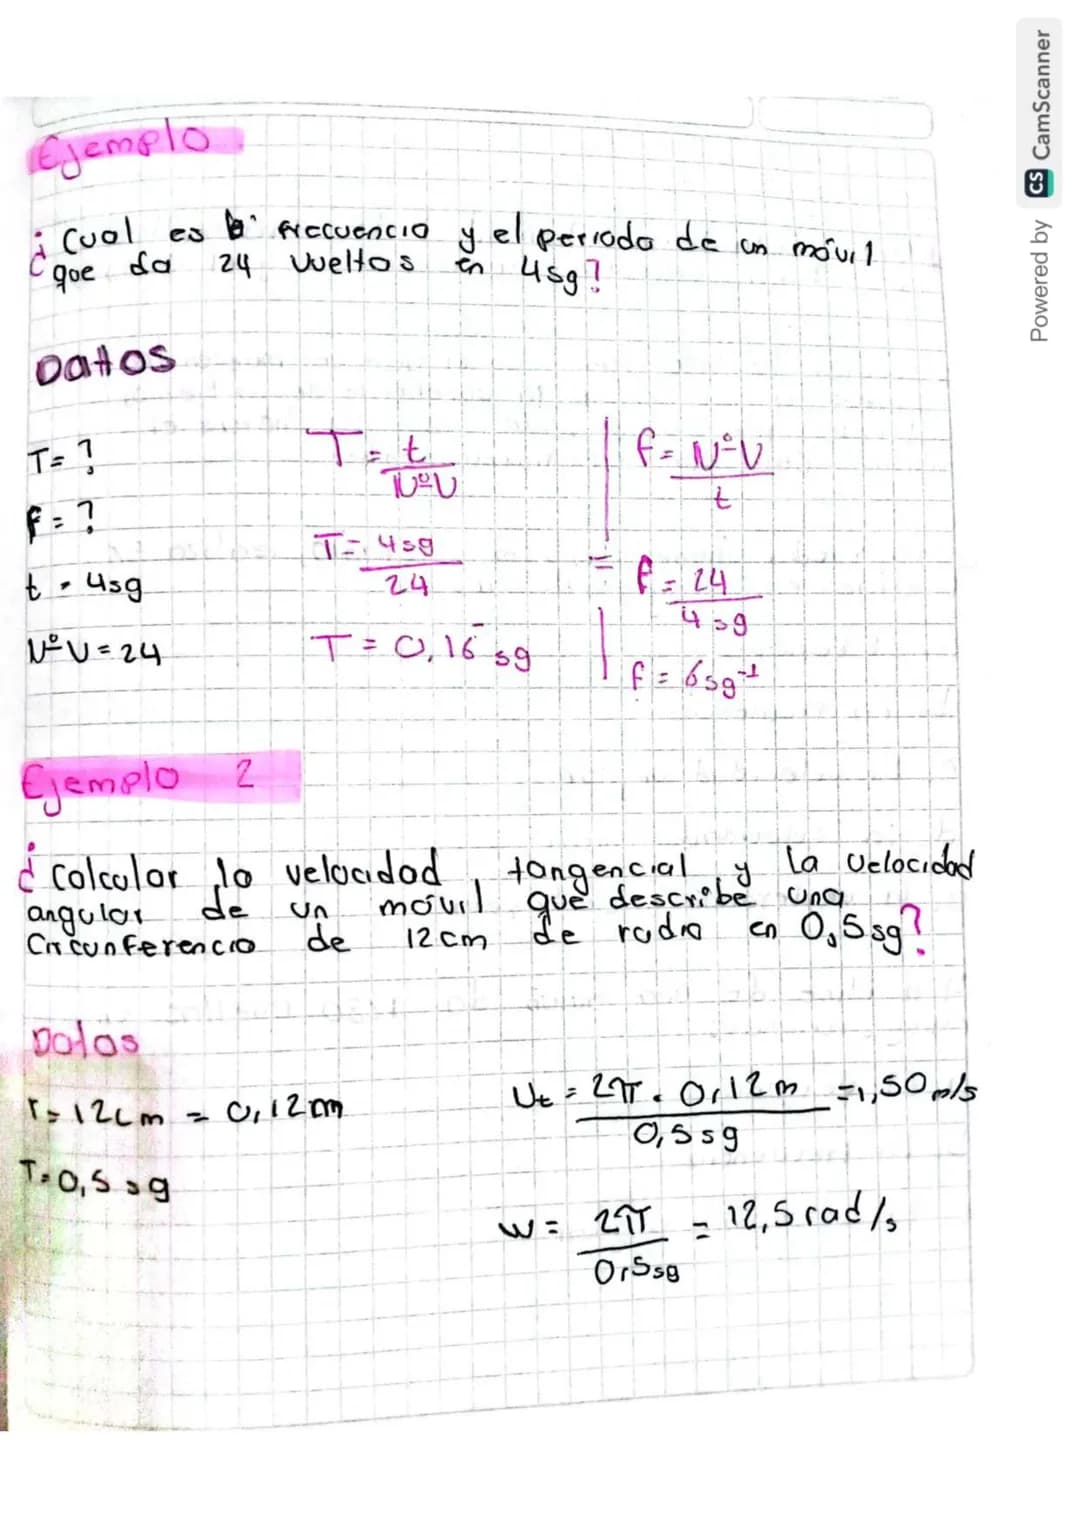 Ejemplo
¿Cual es la frecuencia y el periodo de un móvil
que da 24 vueltas en 4sg?
Datos
T= ?
f = ?
t = 4sg
NºV = 24
T = t / NºV
T = 4sg / 24
T = 0,16 sg
f = NºV / t
= f = 24 / 4sg
f = 6sg⁻¹
Ejemplo 2
¿calcular la velocidad, tangencial y la velocidad
angular de un móvil que describe una
Circunferencia de 12cm de radio en 0,5sg?
Datos
r = 12cm = 0,12m
T = 0,5 sg
Vt = 2π . 0,12m / 0,5sg = 1,50 m/s
w = 2π / 0,5sg = 12,5 rad/s
Powered by CS CamScanner